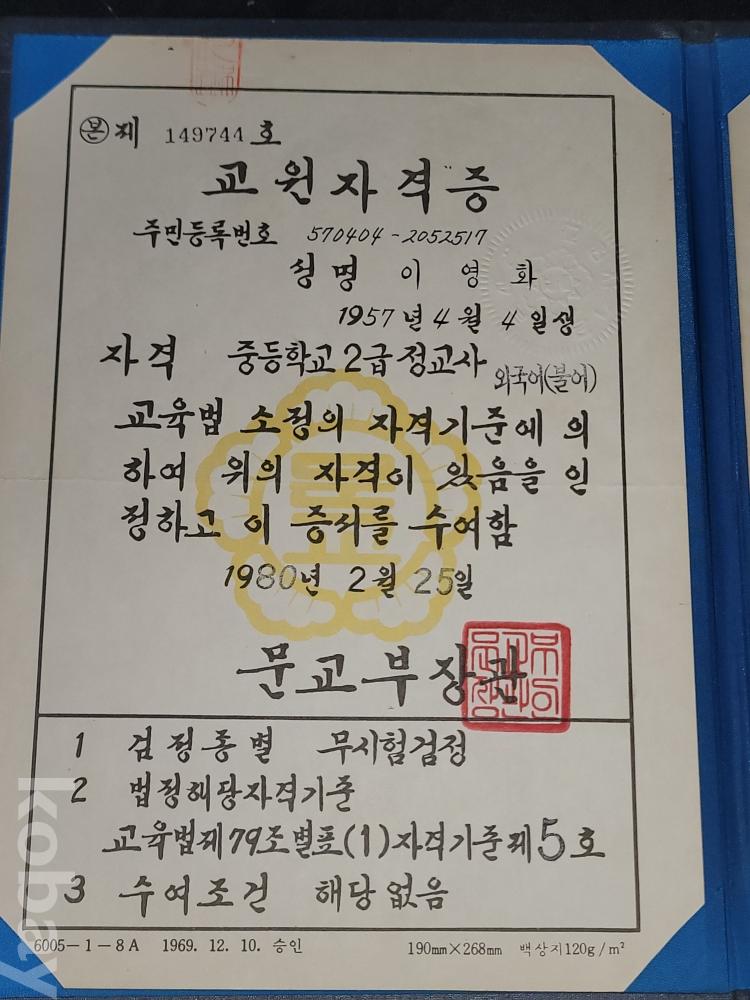 본 제 149744 호
교원자격증
주민등록번호 570404-2052517
성명 이영화
1957년 4월 4일생
자격 중등학교2급정교사 외국어(불어)
교육법 소정의 자격기준에 의
하여 위의 자격이 있음을 인
정하고 이 증서를 수여함
1980년 2월 25일
문교부장관
1 검정종별 무시험검정
2 법정해당자격기준
교육법제79조별표(1)자격기준제5호
3 수여조건 해당없음
6005-1-8A 1969. 12. 10. 승인 190mm×268mm 백상지120g/m²
kobay